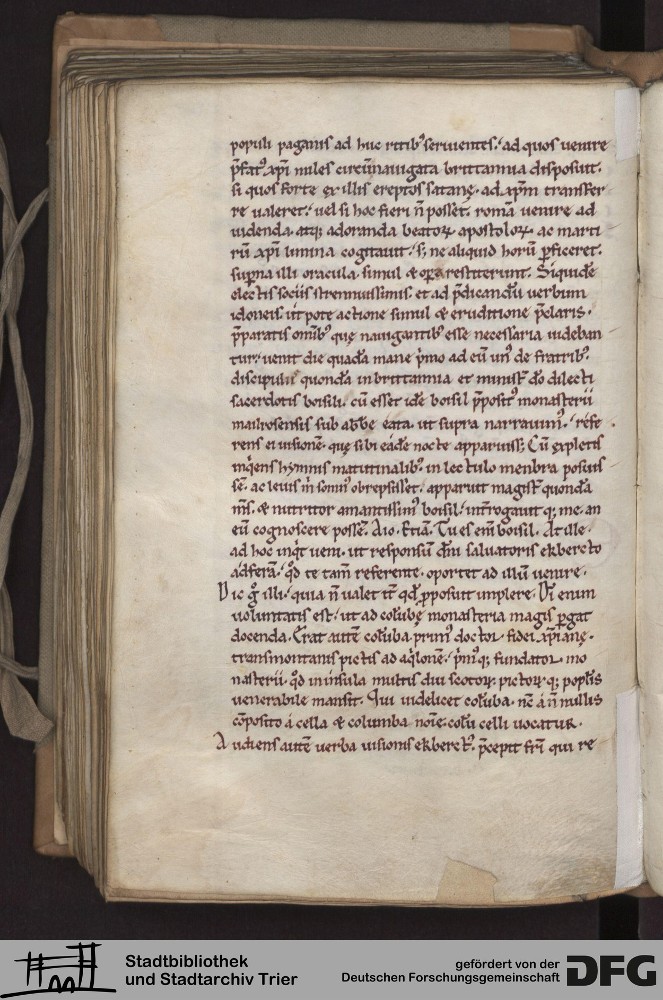 populi paganis ad huc ritib' seruientes. ad quos uenire
p̄fat' xp̄i miles circū nauigata brittannia disposuit.
si quos forte ex illis ereptos satanę. ad xp̄m transfer
re ualeret. uel si hoc fieri n̄ posset. romā uenire ad
uidenda atq; adoranda beatoꝝ apostoloꝝ. ac marti
rū xp̄i limina cogitauit. s; ne aliquid horū ꝑficeret.
sup̄na illi oracula simul & oꝑa restiterunt. Siquidē
electis sociis strennuissimis. et ad p̄dicandū uerbum
idoneis. ut pote actione simul & eruditione p̄claris.
p̄paratis omīb' quę nauigantib' esse necessaria uideban
tur. uenit die quadā mane p̄mo ad eū un' de fratrib'.
discipulus quondā in brittannia et minist̄ dō dilecti
sacerdotis boisili. cū esset idē boisil p̄posit' monasterii
mailrosensis sub abbe eata. ut supra narrauim'. refe
rens ei uisionē. quę sibi eadē nocte apparuiss;. Cū expletis
inq̇ens hymnis matutinalib' in lectulo menbra posuis
sē. ac leuis m̄ somn' obrepsisset. apparuit magist̄ quondā
m̄s. & nutritor amantissim' boisil. int̄rogauit q; me. an
eū cognoscere possē. Aio. Etiā. Tu es enī boisil. At ille.
ad hoc inq̇t ueni. ut responsū dn̄i saluatoris ekbercto
adferā. qd̄ te tam̄ referente. oportet ad illū uenire.
Dic g̊ illi. quia n̄ ualet iter qd̄ ꝓposuit implere. Dī enim
uoluntatis est. ut ad colūbę monasteria magis ꝑgat
docenda. Erat autē colūba prim' doctor fidei xp̄ianę.
transmontanis pictis ad aq̇lonē. p̄m' q; fundator mo
nasterii. qd̄ in insula multis diu scotoꝝ. pictoꝝ q; popl̄is
uenerabile mansit. Qui uidelicet colūba. nc̄ a n̄nullis
cōposito a cella & columba noīe. colū celli uocatur.
Audiens autē uerba uisionis ekberct'. p̄cepit fr̄i qui re
Stadtbibliothek
und Stadtarchiv Trier
gefördert von der
Deutschen Forschungsgemeinschaft
DFG